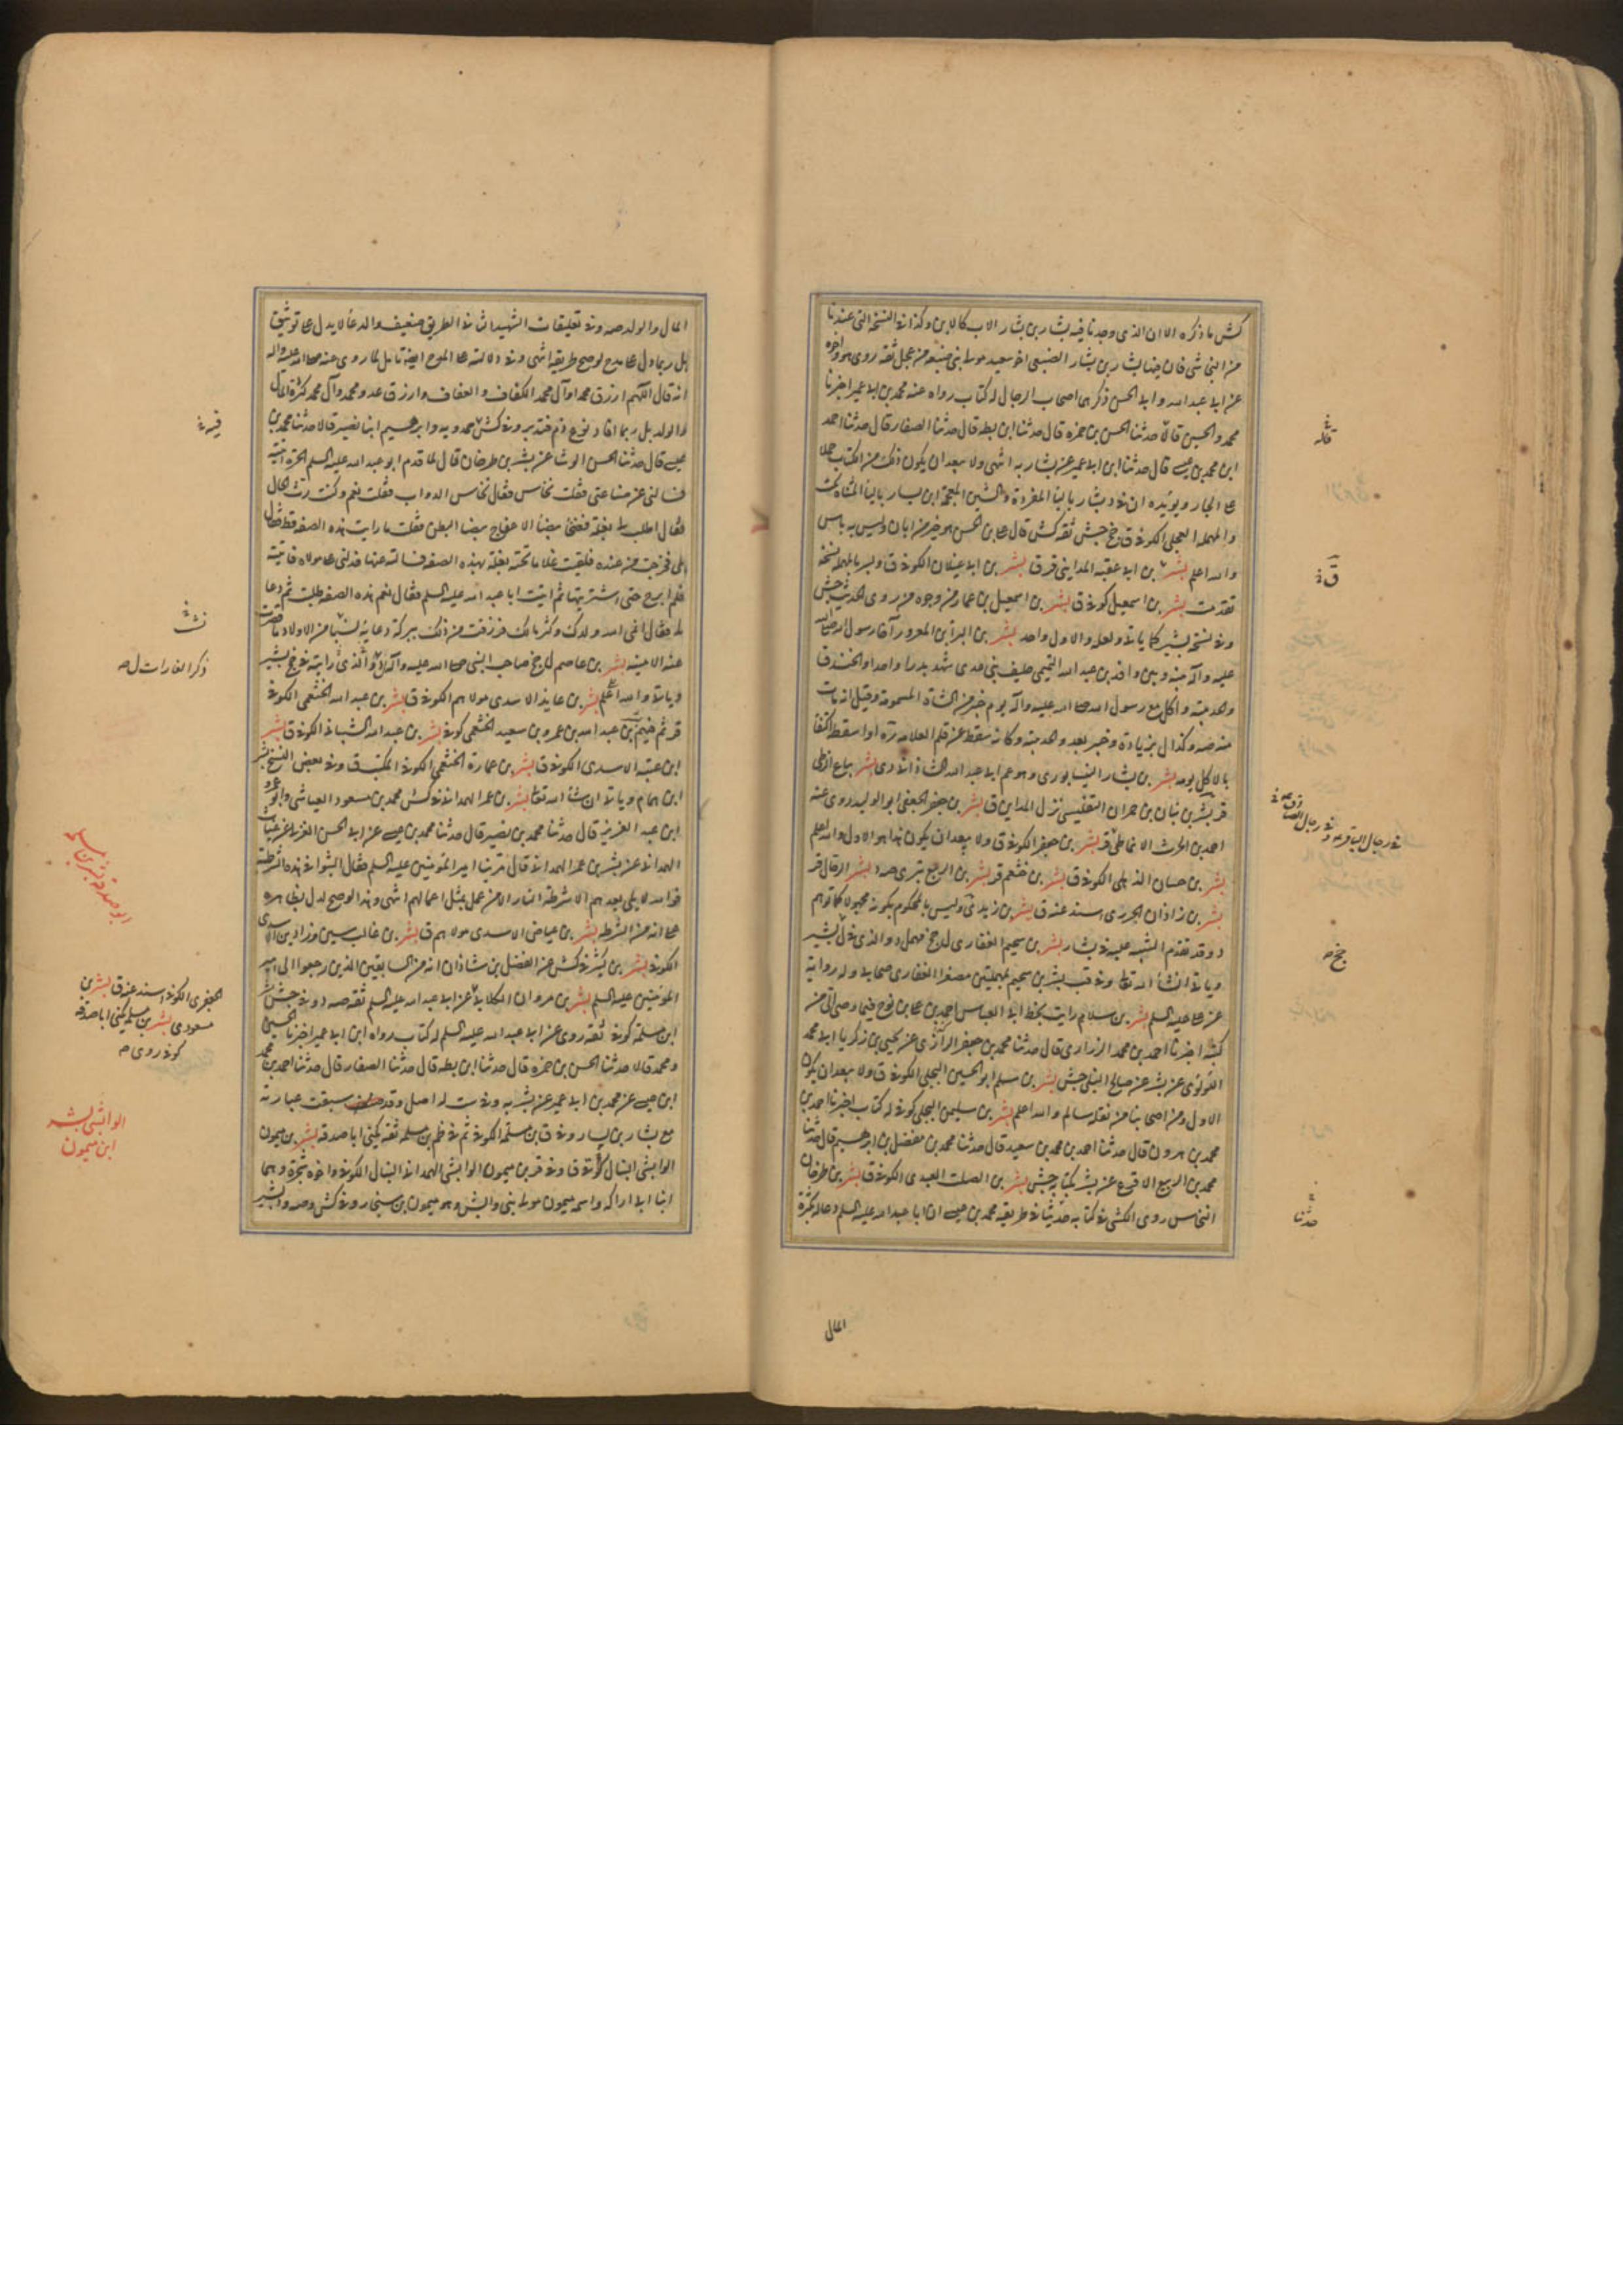 كش ما ذكره الا ان الذي وجدنا فيه بشار بن بشار الاب كالابن وكذا في النسخة التي عندنا
من النجاشي فان فيها بشار بن يسار الضبعي اخو سعيد مولى بني ضبيعة من عجل ثقة روى هو واخوه
عن ابي عبد الله وابي الحسن ذكرهما اصحاب الرجال له كتاب رواه عنه محمد بن ابي عمير اخبرنا
محمد والحسين قالا حدثنا الحسن بن حمزة قال حدثنا ابن بطة قال حدثنا الصفار قال حدثنا احمد
ابن محمد بن عيسى قال حدثنا ابن ابي عمير عن بشار به انتهى ولا يبعد ان يكون ذلك من الكتاب حملا
والمهملة العجلي الكوفي ق وفي جش ثقة كش قال علي بن الحسن هو خير من ابان وليس به باس
والله اعلم بشر بن ابي عقبة المدايني قر ق بشر بن ابي غيلان الكوفي ق
تقدمت بشر بن اسمعيل كوفي ق بشر بن اسمعيل بن عمار من وجوه من روى الحديث جش
وفي نسخة بشير كما ياتي ولعله والاول واحد بشر بن البراء بن المعرور آخا رسول الله صلى الله
عليه وآله بينه وبين واقد بن عبد الله التميمي حليف بني عدي شهد بدرا واحدا والخندق
والحديبية واكل مع رسول الله صلى الله عليه وآله يوم خيبر من الشاة المسمومة وقيل انه مات
منه صه وكذا ل بزيادة وخيبر بعد والحديبية وكانه سقط عن قلم العلامة ره او اسقط اكتفا
بالاكل يومه بشر بن بشار النيسابوري وهو عم ابي عبد الله الشاذاني دي بشر بياع الزطي
قر بشر بن بيان بن حمران التفليسي نزل المداين ق بشر بن جعفر الجعفي ابو الوليد روى عنه
احمد بن الحرث الانماطي قر بشر بن جعفر الكوفي ق ولا يبعد ان يكون هذا هو الاول والله اعلم
بشر بن حسان الذهلي الكوفي ق بشر بن خثعم قر بشر بن الربيع بتري صه د بشر الرحال قر
بشر بن زاذان الجزري اسند عنه ق بشر بن زيد ي وليس بالمحكوم بكونه مجهولا كما توهم
د وقد تقدم التنبيه عليه في بشار بشر بن سحيم الغفاري ل جخ مهمل د والذي في ل بشير
وياتي انشاء الله تعالى وفي قب بشر بن سحيم بمهملتين مصغرا الغفاري صحابي وله رواية
عن علي عليه السلم بشر بن سلام رايت بخط ابي العباس احمد بن علي بن نوح فيما وصى الي من
كتبه اخبرنا احمد بن محمد الزراري قال حدثنا محمد بن جعفر الرزاز عن يحيى بن زكريا ابي محمد
اللؤلؤي عن بشر عن صالح النيلي جش بشر بن سلم ابو الحسين البجلي الكوفي ق ولا يبعد ان يكون
الاول ومن اصحابنا من نقله سالم والله اعلم بشر بن سليمن البجلي كوفي له كتاب اخبرنا احمد بن
محمد بن هرون قال حدثنا احمد بن محمد بن سعيد قال حدثنا محمد بن مفضل بن ابرهيم قال حدثنا
محمد بن الربيع الاقرع عن بشر بكتابه جش بشر بن الصلت العبدي الكوفي ق بشر بن طرخان
النخاس روى الكشي في كتابه حديثا في طريقه محمد بن عيسى ان ابا عبد الله عليه السلم دعا له بكثرة
في رجال الباقر
جخ
حدثنا
المال
المال والولد صه وفي تعليقات الشهيد الثاني الطريق ضعيف والدعاء لا يدل على توثيق
بل ربما دل على مدح لو صح طريقه انتهى وفي دلالته على المدح ايضا تامل لما روي عنه صلى الله عليه وآله
انه قال اللهم ارزق محمدا وآل محمد الكفاف والعفاف وارزق عدو محمد وآل محمد كثرة المال
والولد بل ربما افاد نوع ذم فتدبر وفي كش حمدويه وابرهيم ابنا نصير قالا حدثنا محمد بن
عيسى قال حدثنا الحسن الوشا عن بشر بن طرخان قال لما قدم ابو عبد الله عليه السلم الحيرة اتيته
فسالني عن صناعتي فقلت نخاس فقال نخاس الدواب فقلت نعم وكنت رث الحال
فقال اطلب لي بغلة فضحاء بيضاء الاعفاج بيضاء البطن فقلت ما رايت هذه الصفة قط فقال
بلى فخرجت من عنده فلقيت غلاما تحته بغلة بهذه الصفة فسالته عنها فدلني على مولاه فاتيته
فلم ابرح حتى اشتريتها ثم اتيت ابا عبد الله عليه السلم فقال نعم هذه الصفة طلبت ثم دعا
لي فقال انمى الله ولدك وكثر مالك فرزقت من ذلك ببركة دعائه
عنه الامنية بشر بن عاصم ل جخ صاحب النبي صلى الله عليه وآله
وياتي والله اعلم بشر بن عايذ الاسدي مولاهم الكوفي ق بشر بن عبد الله الخثعمي الكوفي
قر ثم فيهم بن عبد الله بن عمرو بن سعيد الخثعمي كوفي بشر بن عبد الله الشيباني الكوفي ق بشر
ابن عتبة الاسدي الكوفي ق بشر بن عمارة الخثعمي الكوفي المكتب ق وفي بعض النسخ بشر
ابن همام وياتي ان شاء الله تعالى بشر بن عمر الهمداني في كش محمد بن مسعود العياشي وابو عمرو
ابن عبد العزيز قال حدثنا محمد بن نصير قال حدثنا محمد بن عيسى عن ابي الحسن العزلي عن غياث
الهمداني عن بشر بن عمر الهمداني قال مر بنا امير المؤمنين عليه السلم فقال اثبتوا في هذه الشرطة
فوالله لا يلي بعدهم الا شرطة النار الا من عمل بمثل اعمالهم انتهى وهذا لو صح لدل بظاهره
على انه من الشرطة بشر بن عياض الاسدي مولاهم ق بشر بن غالب سين وزاد ين الاسدي
الكوفي بشر بن كثير في كش عن الفضل بن شاذان انه من السابقين الذين رجعوا الى امير
المؤمنين عليه السلم بشر بن مروان الكلابي عن ابي عبد الله عليه السلم ثقة صه د وفي جش
ابن مسلمة كوفي ثقة روى عن ابي عبد الله عليه السلم له كتاب رواه ابن ابي عمير اخبرنا الحسين
ومحمد قالا حدثنا الحسن بن حمزة قال حدثنا ابن بطة قال حدثنا الصفار قال حدثنا احمد بن محمد
ابن عيسى عن محمد بن ابي عمير عن بشر به وفي ست له اصل وقد سبقت عبارته
مع بشار بن يسار وفي ق ابن مسلمة الكوفي ثم في ظم بن مسلمة ثقة يكنى ابا صدقة بشر بن ميمون
الوابشي النبال كوفي ق وفي قر بن ميمون الوابشي الهمداني النبال الكوفي واخوه شجرة وهما
ابنا ابي اراكة واسمه ميمون مولى بني وابش وهو ميمون بن سنجار وفي كش وصه والبشير
ذكر الغارات ل صه
الجعفري الكوفي اسند عنه ق بشر بن
مسعود ي بشر بن سلم يكنى ابا صدقة
كوفي روى
الوابشي بشر
ابن ميمون